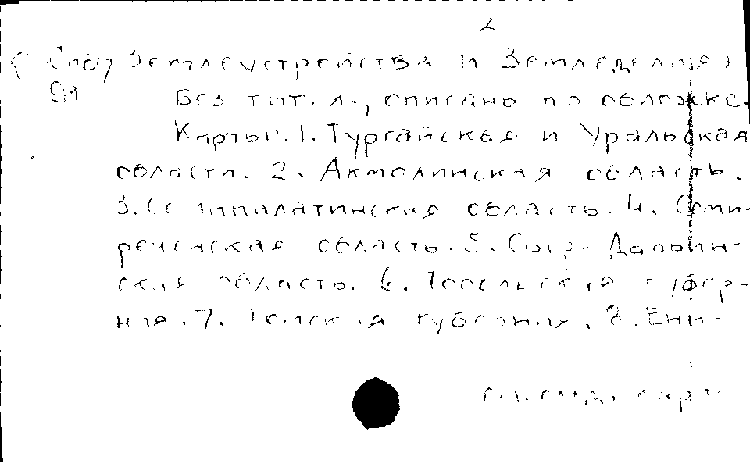 2
(Спб) Землеустройства и Земледелия)
Без тит. л., описано по обложке.
Карты: 1. Тургайская и Уральская
области. 2. Акмолинская область.
3. Семипалатинская область. 4. Семи-
реченская область. 5. Сыр-Дарьин-
ская область. 6. Тобольская губер-
ния. 7. Томская губерния. 8. Ени-
см. след. карт.